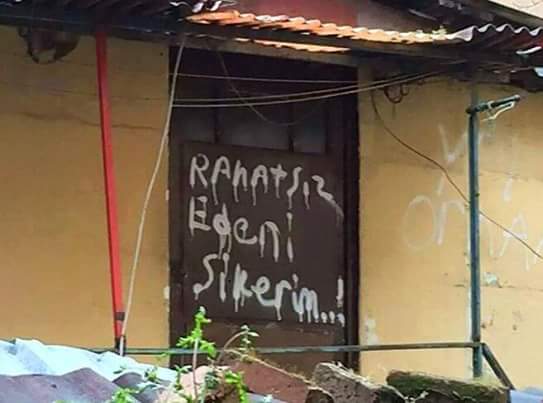 RAHATSIZ
EDENİ
SİKERİM..!